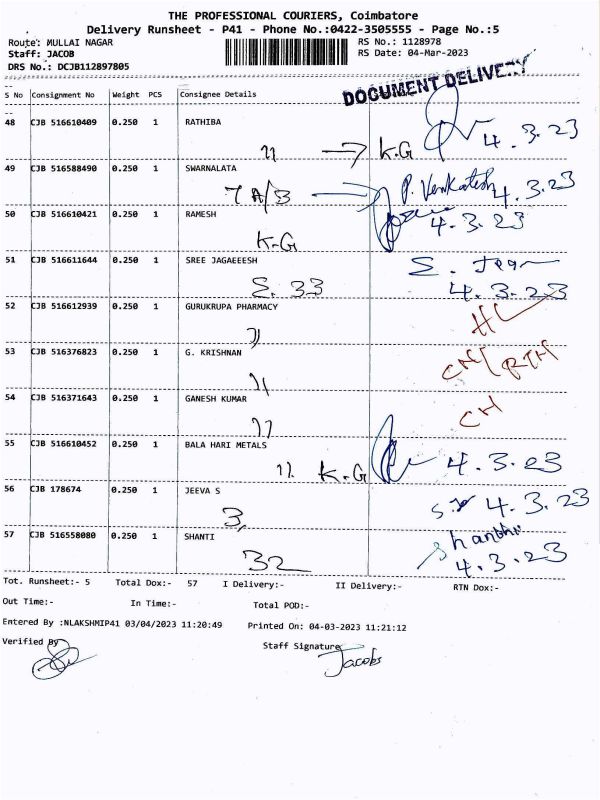 THE PROFESSIONAL COURIERS, Coimbatore
Delivery Runsheet - P41 - Phone No.:0422-3505555 - Page No.:5
Route: MULLAI NAGAR
RS No.: 1128978
Staff: JACOB
RS Date: 04-Mar-2023
DRS No.: DCJB112897805
DOCUMENT DELIVERY
S No Consignment No Weight PCS Consignee Details
48 CJB 516610409 0.250 1 RATHIBA
11 K.G 4.3.23
49 CJB 516588490 0.250 1 SWARNALATA
7 A/3 P. Venkatesh 4.3.23
50 CJB 516610421 0.250 1 RAMESH
K-G 4.3.23
51 CJB 516611644 0.250 1 SREE JAGAEEESH
33 4.3.23
52 CJB 516612939 0.250 1 GURUKRUPA PHARMACY
53 CJB 516376823 0.250 1 G. KRISHNAN
54 CJB 516371643 0.250 1 GANESH KUMAR
55 CJB 516610452 0.250 1 BALA HARI METALS
K.G 4.3.23
56 CJB 178674 0.250 1 JEEVA S
3 4.3.23
57 CJB 516558080 0.250 1 SHANTI
32 4.3.23
Tot. Runsheet:- 5 Total Dox:- 57 I Delivery:- II Delivery:- RTN Dox:-
Out Time:- In Time:- Total POD:-
Entered By :NLAKSHMIP41 03/04/2023 11:20:49 Printed On: 04-03-2023 11:21:12
Verified By Staff Signature
Jacobs